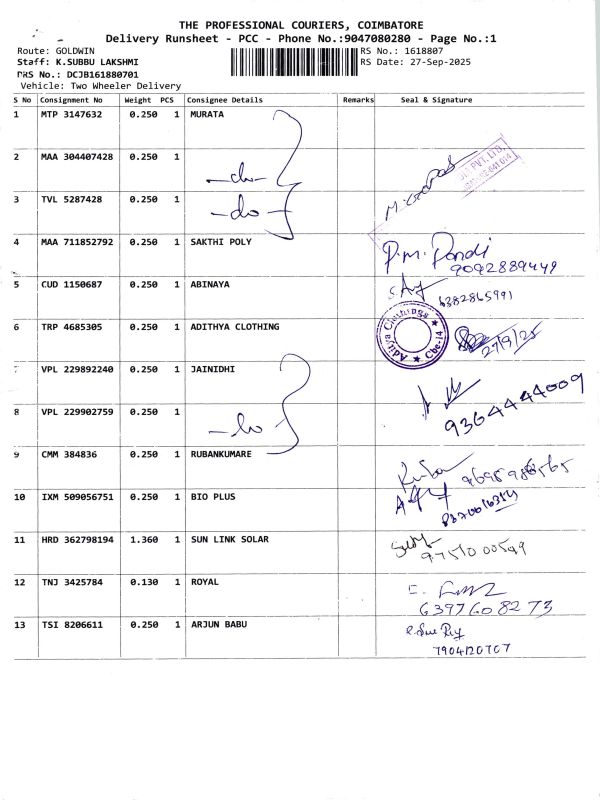 THE PROFESSIONAL COURIERS, COIMBATORE
Delivery Runsheet - PCC - Phone No.:9047080280 - Page No.:1
Route: GOLDWIN RS No.: 1618807
Staff: K.SUBBU LAKSHMI RS Date: 27-Sep-2025
PRS No.: DCJB161880701
Vehicle: Two Wheeler Delivery
S No Consignment No Weight PCS Consignee Details Remarks Seal & Signature
1 MTP 3147632 0.250 1 MURATA
2 MAA 304407428 0.250 1 -do-
3 TVL 5287428 0.250 1 -do-
4 MAA 711852792 0.250 1 SAKTHI POLY P.M. Pandi
9092889449
5 CUD 1150687 0.250 1 ABINAYA
6382865991
6 TRP 4685305 0.250 1 ADITHYA CLOTHING Clothings Cbe-14 27/9/25
7 VPL 229892240 0.250 1 JAINIDHI
8 VPL 229902759 0.250 1 -do- 9364444009
9 CMM 384836 0.250 1 RUBANKUMARE
10 IXM 509056751 0.250 1 BIO PLUS
11 HRD 362798194 1.360 1 SUN LINK SOLAR
12 TNJ 3425784 0.130 1 ROYAL
6397608273
13 TSI 8206611 0.250 1 ARJUN BABU
7904120707